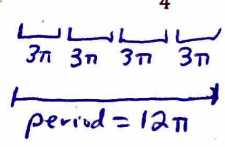 4
3π 3π 3π 3π
period = 12π